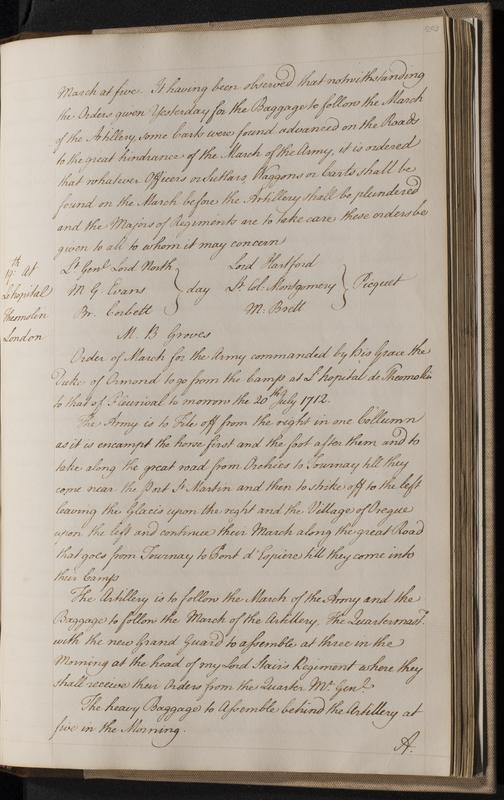 March at five. It having been observed that notwithstanding
the Orders given Yesterday for the Baggage to follow the March
of the Artillery, some Carts were found advanced on the Roads
to the great hindrance of the March of the Army, it is ordered
that whatever Officers or Sutlars Waggons or Carts shall be
found on the March before the Artillery shall be plundered
and the Majors of Regiments are to take care these orders be
given to all to whom it may concern
19th At
Lehopital
Theomolin
London
Lt Genl Lord North
M. G. Evans
Br. Corbett
day
Lord Hartford
Lt. Col. Montgomery
M. Brett
Picquet
M. B Groves
Order of March for the Army commanded by his Grace the
Duke of Ormond to go from the Camp at L'hopital de Theomolin
to that of Fleurival to morrow the 20th July 1712.
The Army is to File off from the right in one Collumn
as it is encampt the horse first and the foot after them and to
take along the great road from Orchies to Tournay till they
come near the Port St Martin and then to strike off to the left
leaving the Glacis upon the right and the Village of Oregue
upon the left and continue their March along the great Road
that goes from Tournay to Pont d'Espiere till they come into
their Camp
The Artillery is to follow the March of the Army and the
Baggage to follow the March of the Artillery. The Quartermast.
with the new Grand Guard to assemble at three in the
Morning at the head of my Lord Stairs Regiment where they
shall receive their Orders from the Quarter Mr. Genl.
The heavy Baggage to Assemble behind the Artillery at
five in the Morning.
A.